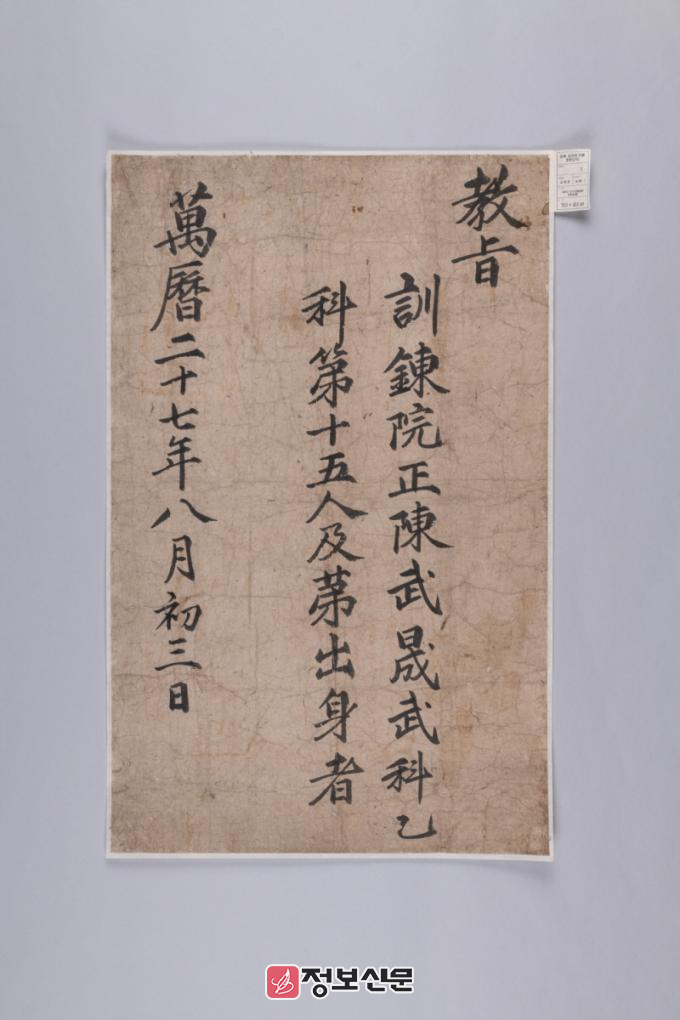 教旨
訓鍊院正陳武晟武科乙
科第十五人及第出身者
萬曆二十七年八月初三日
정보신문